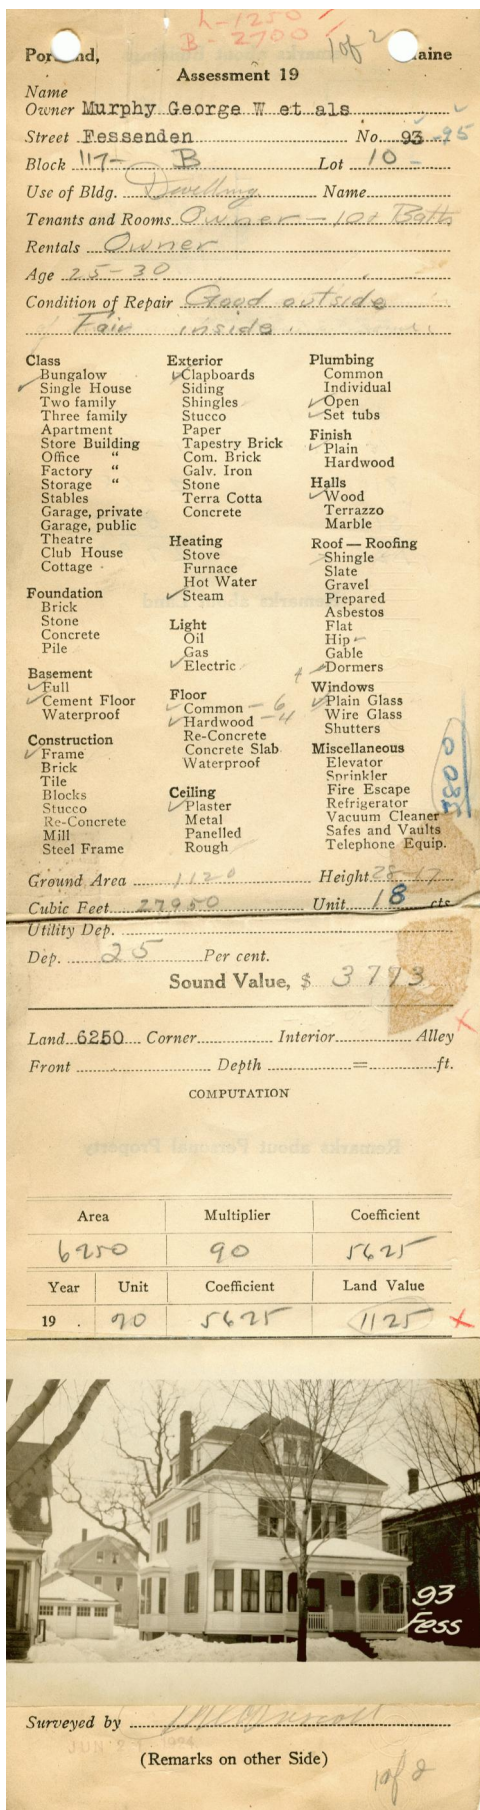 L-1250
B-2700
1 of 2
Portland, Maine
Assessment 19
Name
Owner Murphy George W et als
Street Fessenden No. 93-95
Block 117- B Lot 10-
Use of Bldg. Dwelling Name
Tenants and Rooms Owner-10+ Bath
Rentals Owner
Age 25-30
Condition of Repair Good outside
Fair inside
Class
Bungalow
Single House
Two family
Three family
Apartment
Store Building
Office "
Factory "
Storage "
Stables
Garage, private
Garage, public
Theatre
Club House
Cottage
Foundation
Brick
Stone
Concrete
Pile
Basement
Full
Cement Floor
Waterproof
Construction
Frame
Brick
Tile
Blocks
Stucco
Re-Concrete
Mill
Steel Frame
Exterior
Clapboards
Siding
Shingles
Stucco
Paper
Tapestry Brick
Com. Brick
Galv. Iron
Stone
Terra Cotta
Concrete
Heating
Stove
Furnace
Hot Water
Steam
Light
Oil
Gas
Electric
Floor
Common - 6
Hardwood - 4
Re-Concrete
Concrete Slab
Waterproof
Ceiling
Plaster
Metal
Panelled
Rough
Plumbing
Common
Individual
Open
Set tubs
Finish
Plain
Hardwood
Halls
Wood
Terrazzo
Marble
Roof — Roofing
Shingle
Slate
Gravel
Prepared
Asbestos
Flat
Hip
Gable
4 Dormers
Windows
Plain Glass
Wire Glass
Shutters
Miscellaneous
Elevator
Sprinkler
Fire Escape
Refrigerator
Vacuum Cleaner
Safes and Vaults
Telephone Equip.
Ground Area 1120 Height 28-17
Cubic Feet 27950 Unit 18 cts
Utility Dep.
Dep. 25 Per cent.
Sound Value, $ 3773
Land 6250 Corner Interior Alley
Front Depth = ft.
COMPUTATION
Remarks about Personal Property
Area Multiplier Coefficient
6250 90 5625
Year Unit Coefficient Land Value
19 . 20 5625 1125
93
Fess
Surveyed by
(Remarks on other Side)
1 of 2